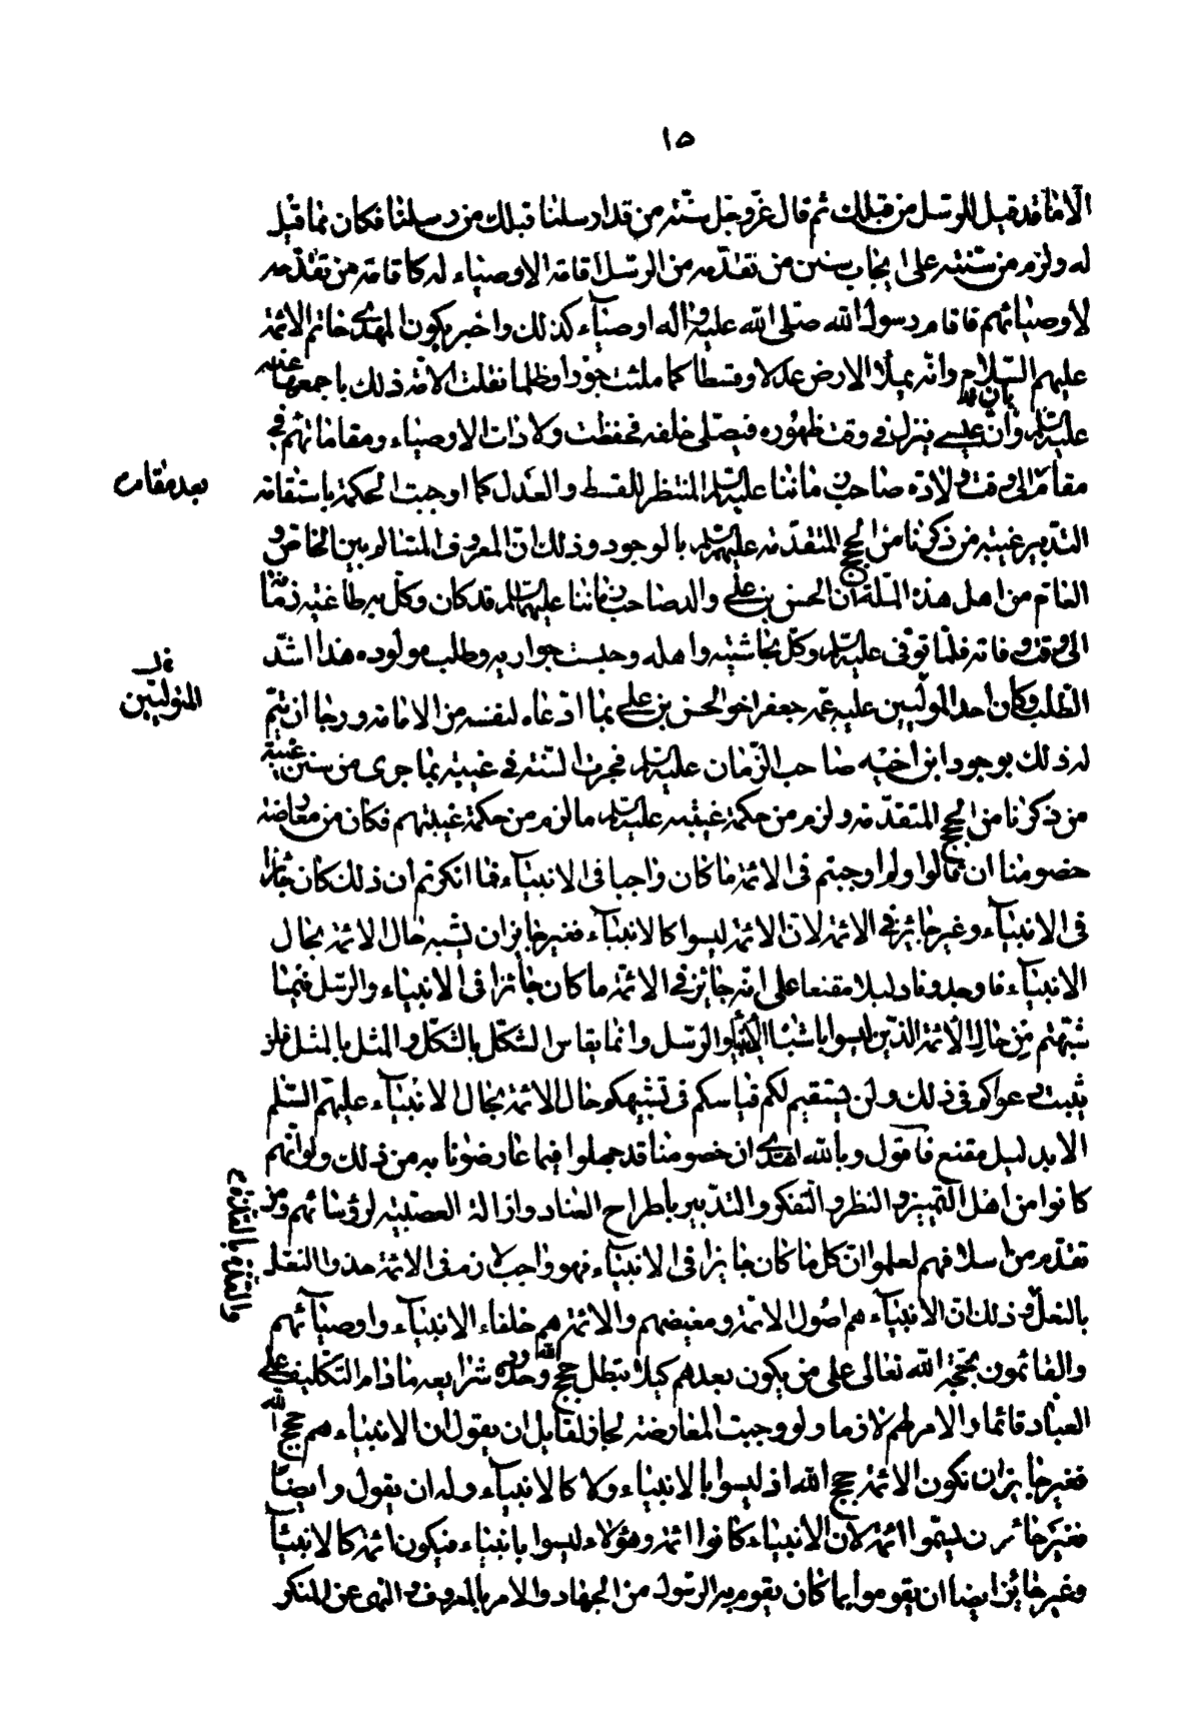 ١٥
الا ما قد قيل للرسل من قبلك ثم قال عز وجل سنة من قد ارسلنا قبلك من رسلنا فكان مما قيل
له ولزم من سنته على ايجاب سنن من تقدمه من الرسل اقامة الاوصياء له كاقامة من تقدمه
لاوصيائهم فاقام رسول الله صلى الله عليه واله اوصياء كذلك واخبر بكون المهدي خاتم الائمة
عليهم السلام وانه يملأ الارض عدلا وقسطا كما ملئت جورا وظلما نقلت الامة ذلك باجمعها عنه
عليه السلم وان عيسى ينزل في وقت ظهوره فيصلى خلفه فحفظت ولادات الاوصياء ومقاماتهم في
مقام الى وقت ولادة صاحب زماننا عليه السلم المنتظر للقسط والعدل كما اوجبت الحكمة باستقامة
بعد مقام
التدبير غيبة من ذكرنا من الحجج المتقدمة عليهم السلم بالوجود وذلك ان المعروف المتسالم بين الخاص و
العام من اهل هذه الملة ان الحسن بن علي والد صاحب زماننا عليهما السلم قد كان وكل به طاغية زمانه
الى وقت وفاته فلما توفى عليه السلم وكل بحاشيته واهله وحبست جواريه وطلب مولوده هذا اشد
الطلب وكان احد المولين عليه عمه جعفر اخو الحسن بن علي بما ادعاه لنفسه من الامامة ورجا ان يتم
المتوليين
له ذلك بوجود ابن اخيه صاحب الزمان عليه السلم فجرت السنة في غيبته بما جرى من سنن غيبة
من ذكرنا من الحجج المتقدمة ولزم من حكمة غيبته عليه السلم ما لزم من حكمة غيبتهم فكان من معارضة
خصومنا ان قالوا ولم اوجبتم في الائمة ما كان واجبا في الانبياء فما انكرتم ان ذلك كان جائزا
في الانبياء وغير جائز في الائمة لان الائمة ليسوا كالانبياء فغير جائز ان يشبه حال الائمة بحال
الانبياء فاوجدونا دليلا مقنعا على انه جائز في الائمة ما كان جائزا في الانبياء والرسل فيما
شبهتم من حال الائمة الذين ليسوا باشباه الانبياء والرسل وانما يقاس الشكل بالشكل والمثل بالمثل فلن
يثبت دعواكم في ذلك ولن يستقيم لكم قياسكم في تشبيهكم حال الائمة بحال الانبياء عليهم السلم
الا بدليل مقنع فاقول وبالله اهتدى ان خصومنا قد جهلوا فيما عارضونا به من ذلك ولو انهم
كانوا من اهل التمييز والنظر والتفكر والتدبير باطراح العناد وازالة العصبية لرؤسائهم ومن
تقدم من اسلافهم لعلموا ان كل ما كان جايزا في الانبياء فهو واجب لازم في الائمة حذو النعل
والقذة بالقذة
بالنعل وذلك ان الانبياء هم اصول الائمة ومغيضهم والائمة هم خلفاء الانبياء واوصيائهم
والقائمون بحجة الله تعالى على من يكون بعدهم كيلا تبطل حجج الله وحدوده شرايعه ما دام التكليف على
العباد قائما والامر لهم لازما ولو وجبت المعارضة لجاز لقايل ان يقول ان الانبياء هم حجج الله
فغير جايز ان تكون الائمة حجج الله اذ ليسوا بالانبياء ولا كالانبياء وله ان يقول وايضا
فغير جائز ن ليتموا ائمة لان الانبياء كانوا ائمة وهؤلاء ليسوا بانبياء فيكون ائمة كالانبياء
وغير جائز ايضا ان يقوموا بما كان يقوم به الرسول من الجهاد والامر بالمعروف والنهى عن المنكر